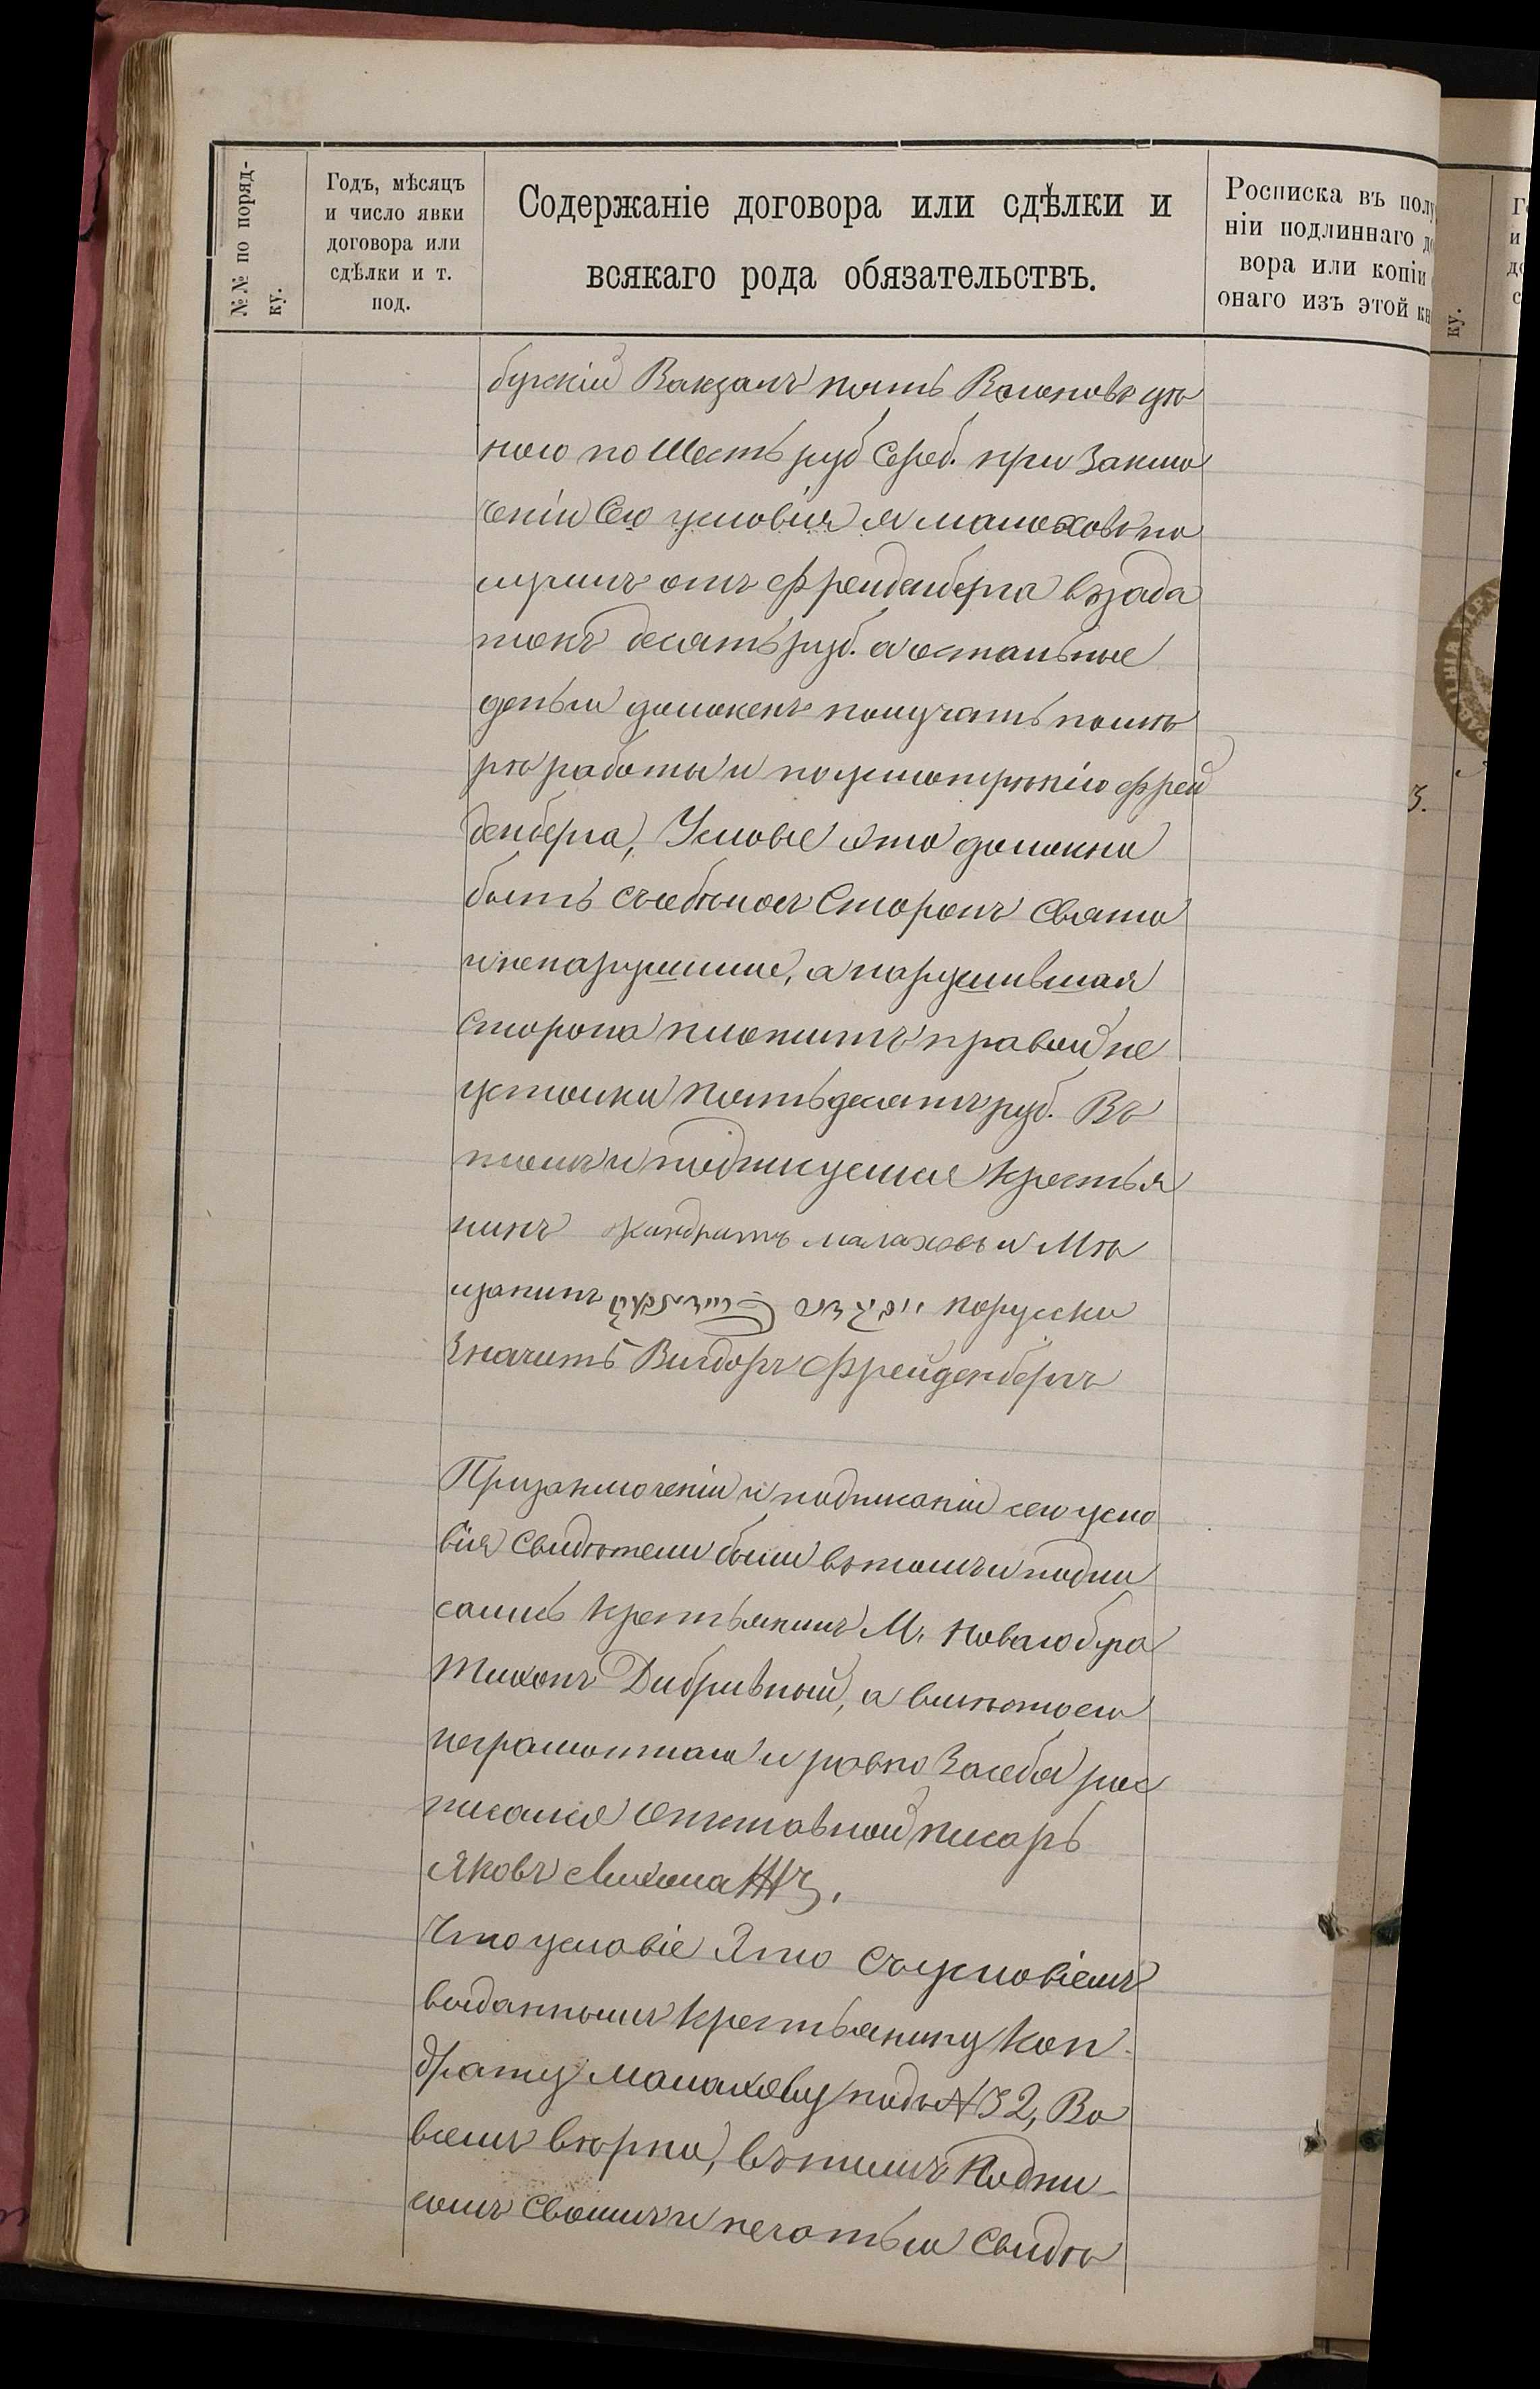 №№ по поряд-
ку.
Годъ, мѣсяцъ
и число явки
договора или
сдѣлки и т.
под.
Содержаніе договора или сдѣлки и
всякаго рода обязательствъ.
Росписка въ полу
ніи подлиннаго до
вора или копіи
онаго изъ этой кн
бургскій Вокзалъ пять Вагоновъ цѣ
ною по Шесть руб Сереб. при Заклю
ченіи Сего условія я малаховъ по
лучилъ отъ Фрейденберга въ зада
токъ десять руб. а остальные
деньги долженъ получать по мѣ
рѣ работы и поусмотрѣнію Фрей
денберга, Условіе это должно
быть съ обѣихъ Сторонъ Свято
и ненарушимо, а нарушившая
Сторона платитъ правой не
устойки пятьдесятъ руб. Въ
томъ и подписуемся Крестья
нинъ Кондратъ малаховъ и Мѣ
щанинъ порусски
Значитъ Вигдоръ Фрейденбергъ
При заключеніи и подписаніи сего усло
вія Свидѣтели были въ томъ и подпи
сались Крестьянинъ М. Новаго бура
Тихонъ Дибривный, а вмѣсто его
неграмотнаго и равно За себя рос
писался Отставной писарь
Яковъ
Что условіе Это Съ условіемъ
выданнымъ Крестьянину Кон-
драту Малахову подъ №32, Во
всемъ вѣрно, въ томъ Подпи-
сомъ Своимъ и печатью Свидѣ
3.
ку.